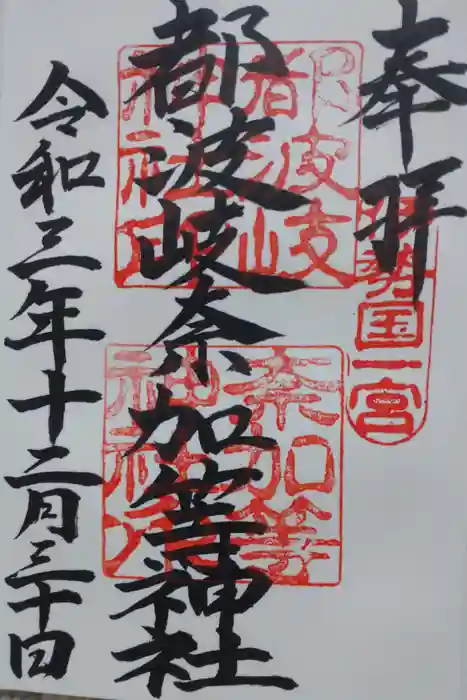 奉拝
伊勢国一宮
都波岐奈加等神社
都波岐神社印
奈加等神社印
令和三年十二月三十日